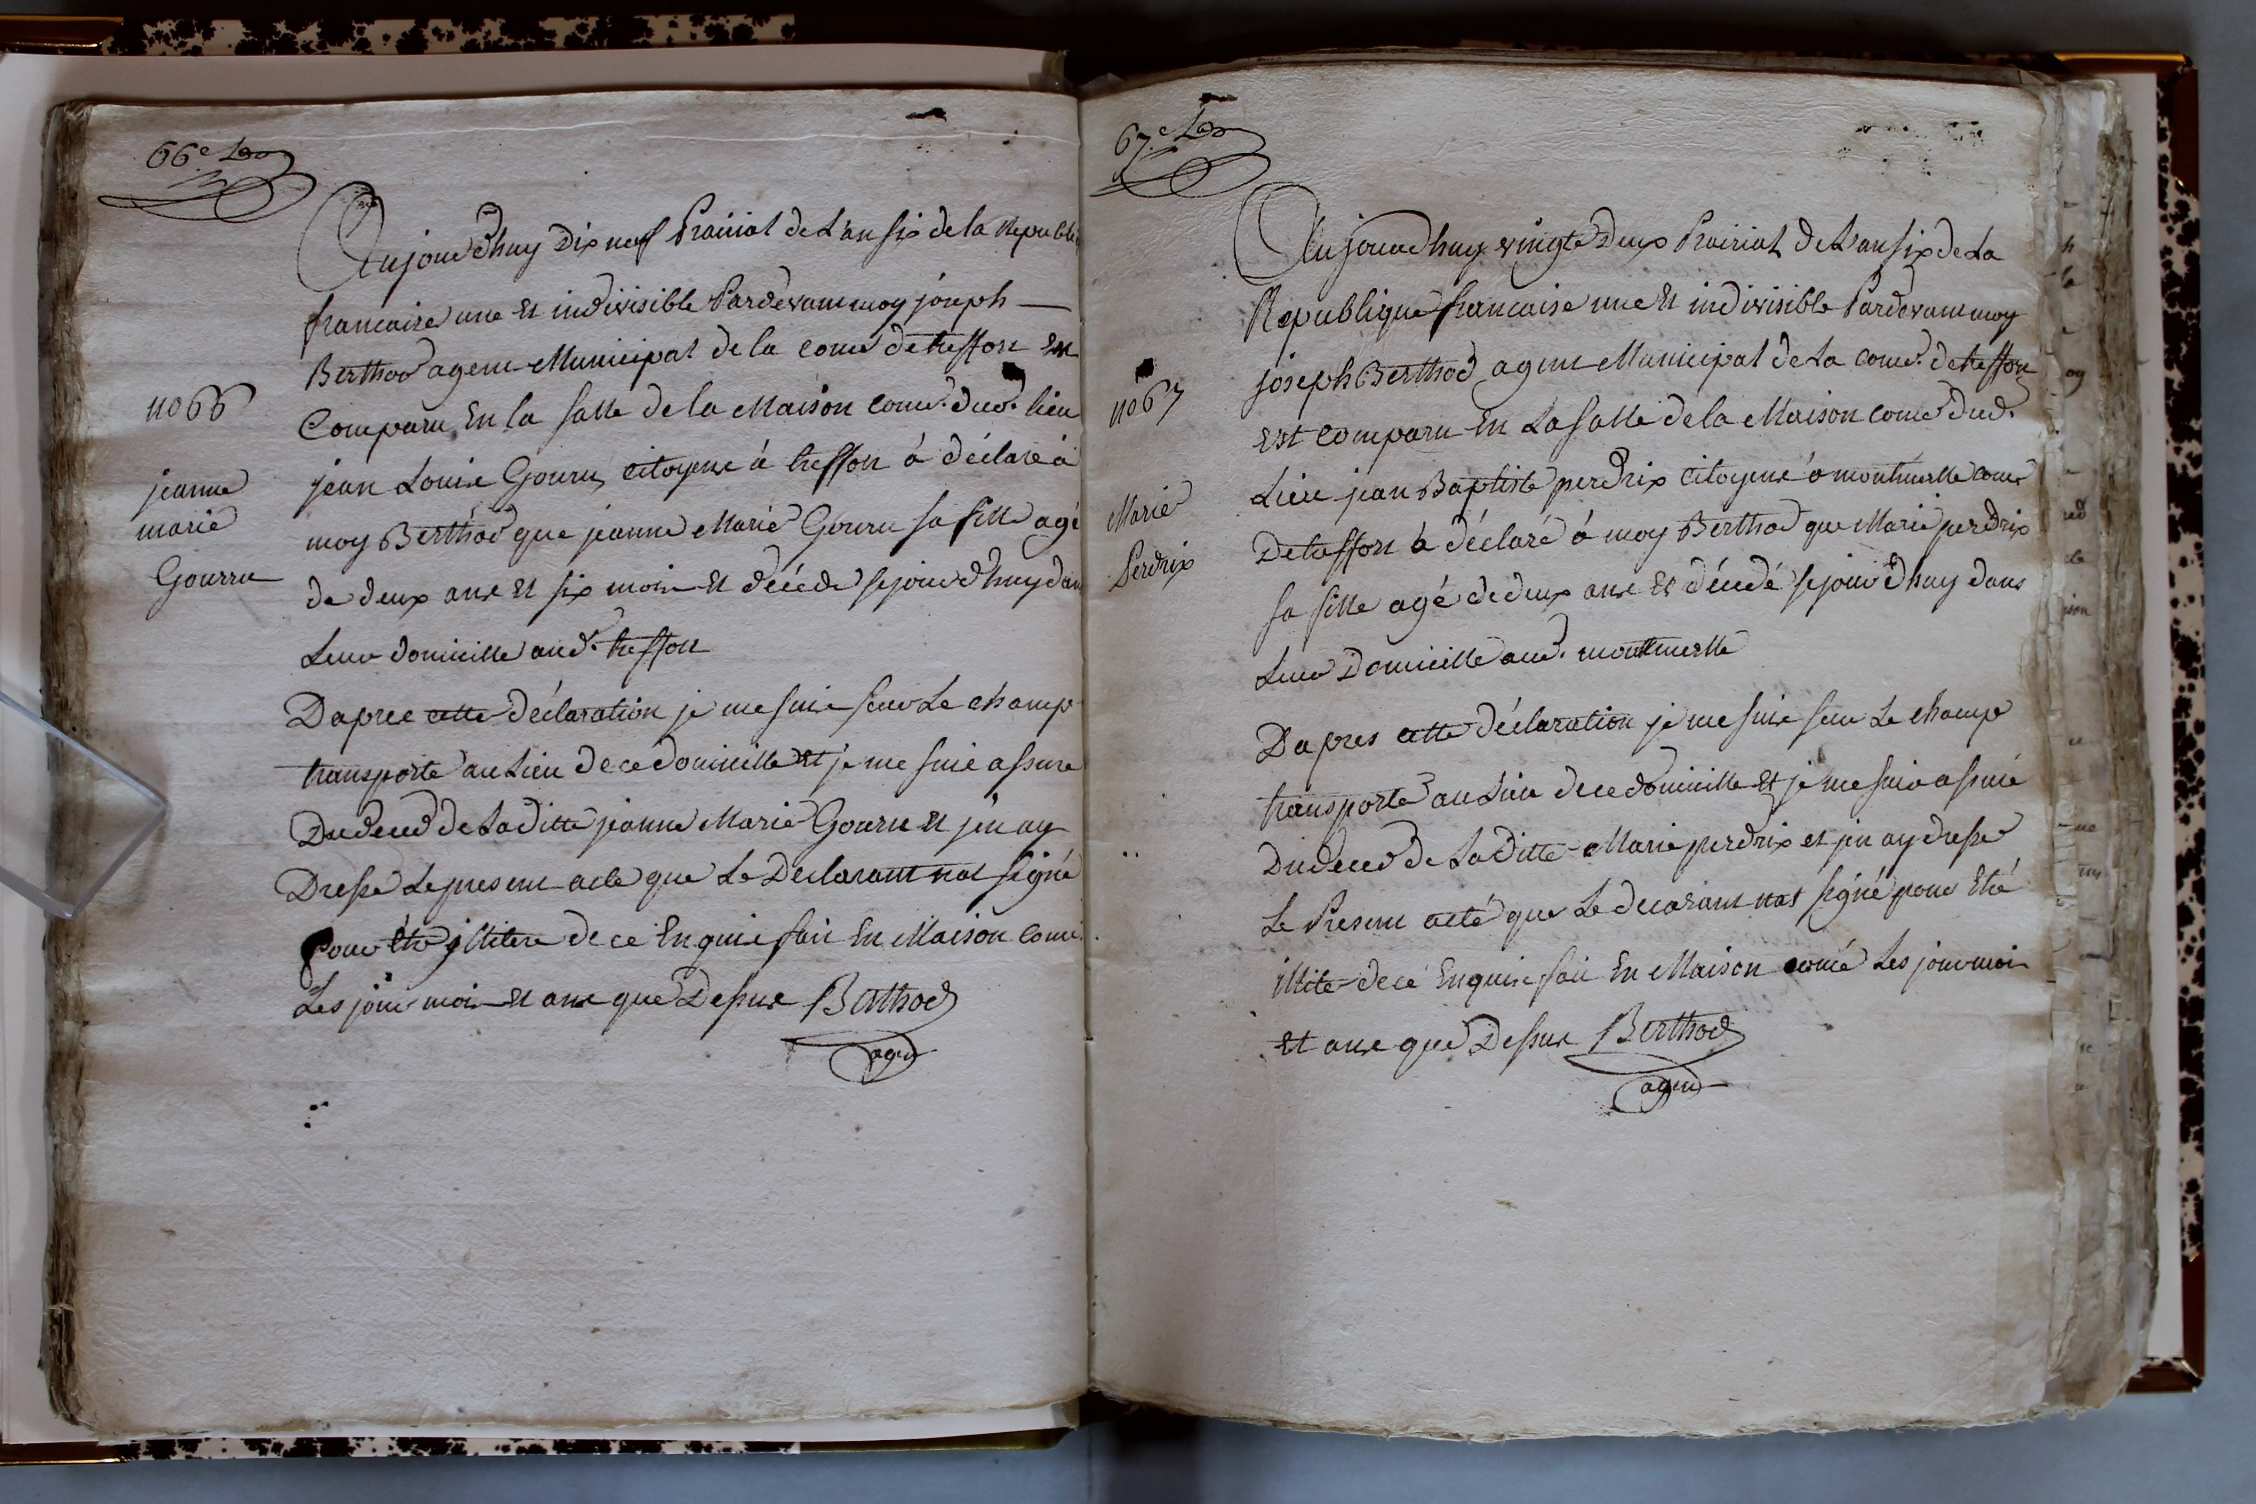 66e
Aujourdhuy Dix neuf Prairial de L'an six de la Republi
francaise une Et indivisible Pardevant moy joseph
Berthod agent Municipal de la come de treffort Est
Comparu En la salle de la Maison come. dud. lieu
no 66
jeanne
marie
Gourru
jean Louis Gouru citoyens à treffort à déclaré à
moy Berthod que jeanne Marie Gouru sa fille agé
de deux ans Et six mois Et décédé sejourdhuy dans
Leur domicille aud. treffort
Dapres cette déclaration je me suis sur Le champ
transporté au Lieu de ce domicille Et je me suis assuré
Du deced de Laditte jeanne Marie Gouru Et j'en ay
Dressé Le present acte que Le Declarant nat signé
Pour Etre illitere de ce Enquis fait En Maison come
Les jour mois Et ans que Dessus Berthod
agent
67e
Aujourdhuy vingte Deux Prairial De L'an six de La
Republique francaise une Et indivisible Pardevant moy
joseph Berthod agent Municipal de La come. de treffort
Est comparu En La salle de la Maison come dud.
no 67
Marie
Perdrix
Lieu jean Baptiste perdrix citoyens à montmerle come
De treffort à déclaré à moy Berthod que Marie perdrix
sa fille agé de deux ans Et décedé sejourdhuy dans
Leur Domicille aud. montmerle
Dapres cette déclaration je me suis sur Le champ
transporté au Lieu de ce domicille Et je me suis assuré
Du deced de Laditte Marie perdrix et j'en ay dressé
Le Present acté que Le decarant nat signé pour Etré
illite de cé Enquis fait En Maison comé Les jour mois
Et ans que Dessus Berthod
agent